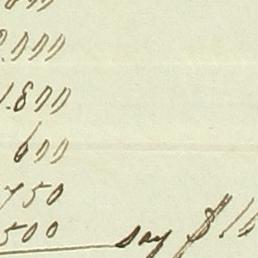 000
.000
1.800
600
750
500 say $ 16